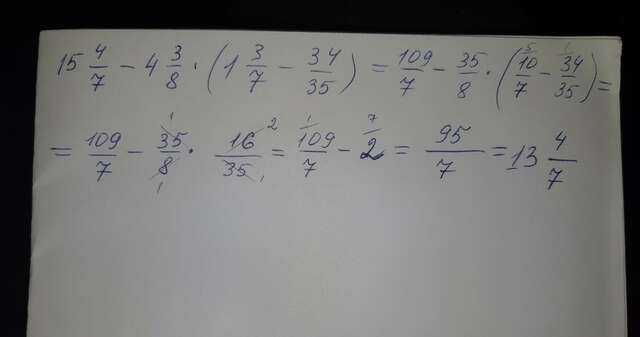 15 4/7 - 4 3/8 · (1 3/7 - 34/35) = 109/7 - 35/8 · (10/7 - 34/35) =
= 109/7 - 35/8 · 16/35 = 109/7 - 2 = 95/7 = 13 4/7